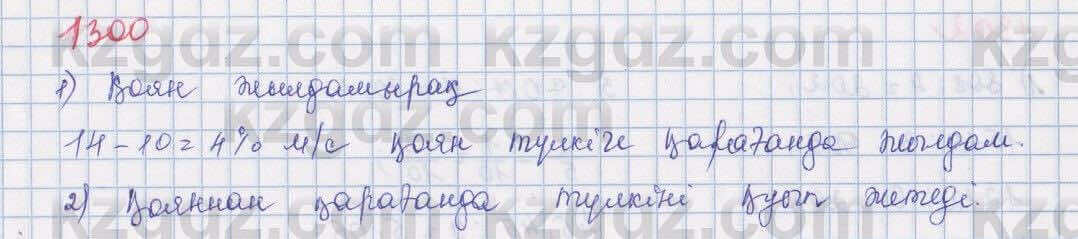 1300
1) Қоян жылдамырақ
14 - 10 = 4% м/с қоян түлкіге қарағанда жылдам.
2) Қояннан қарағанда түлкіні қуып жетеді.
kzgdz.com kzgdz.com